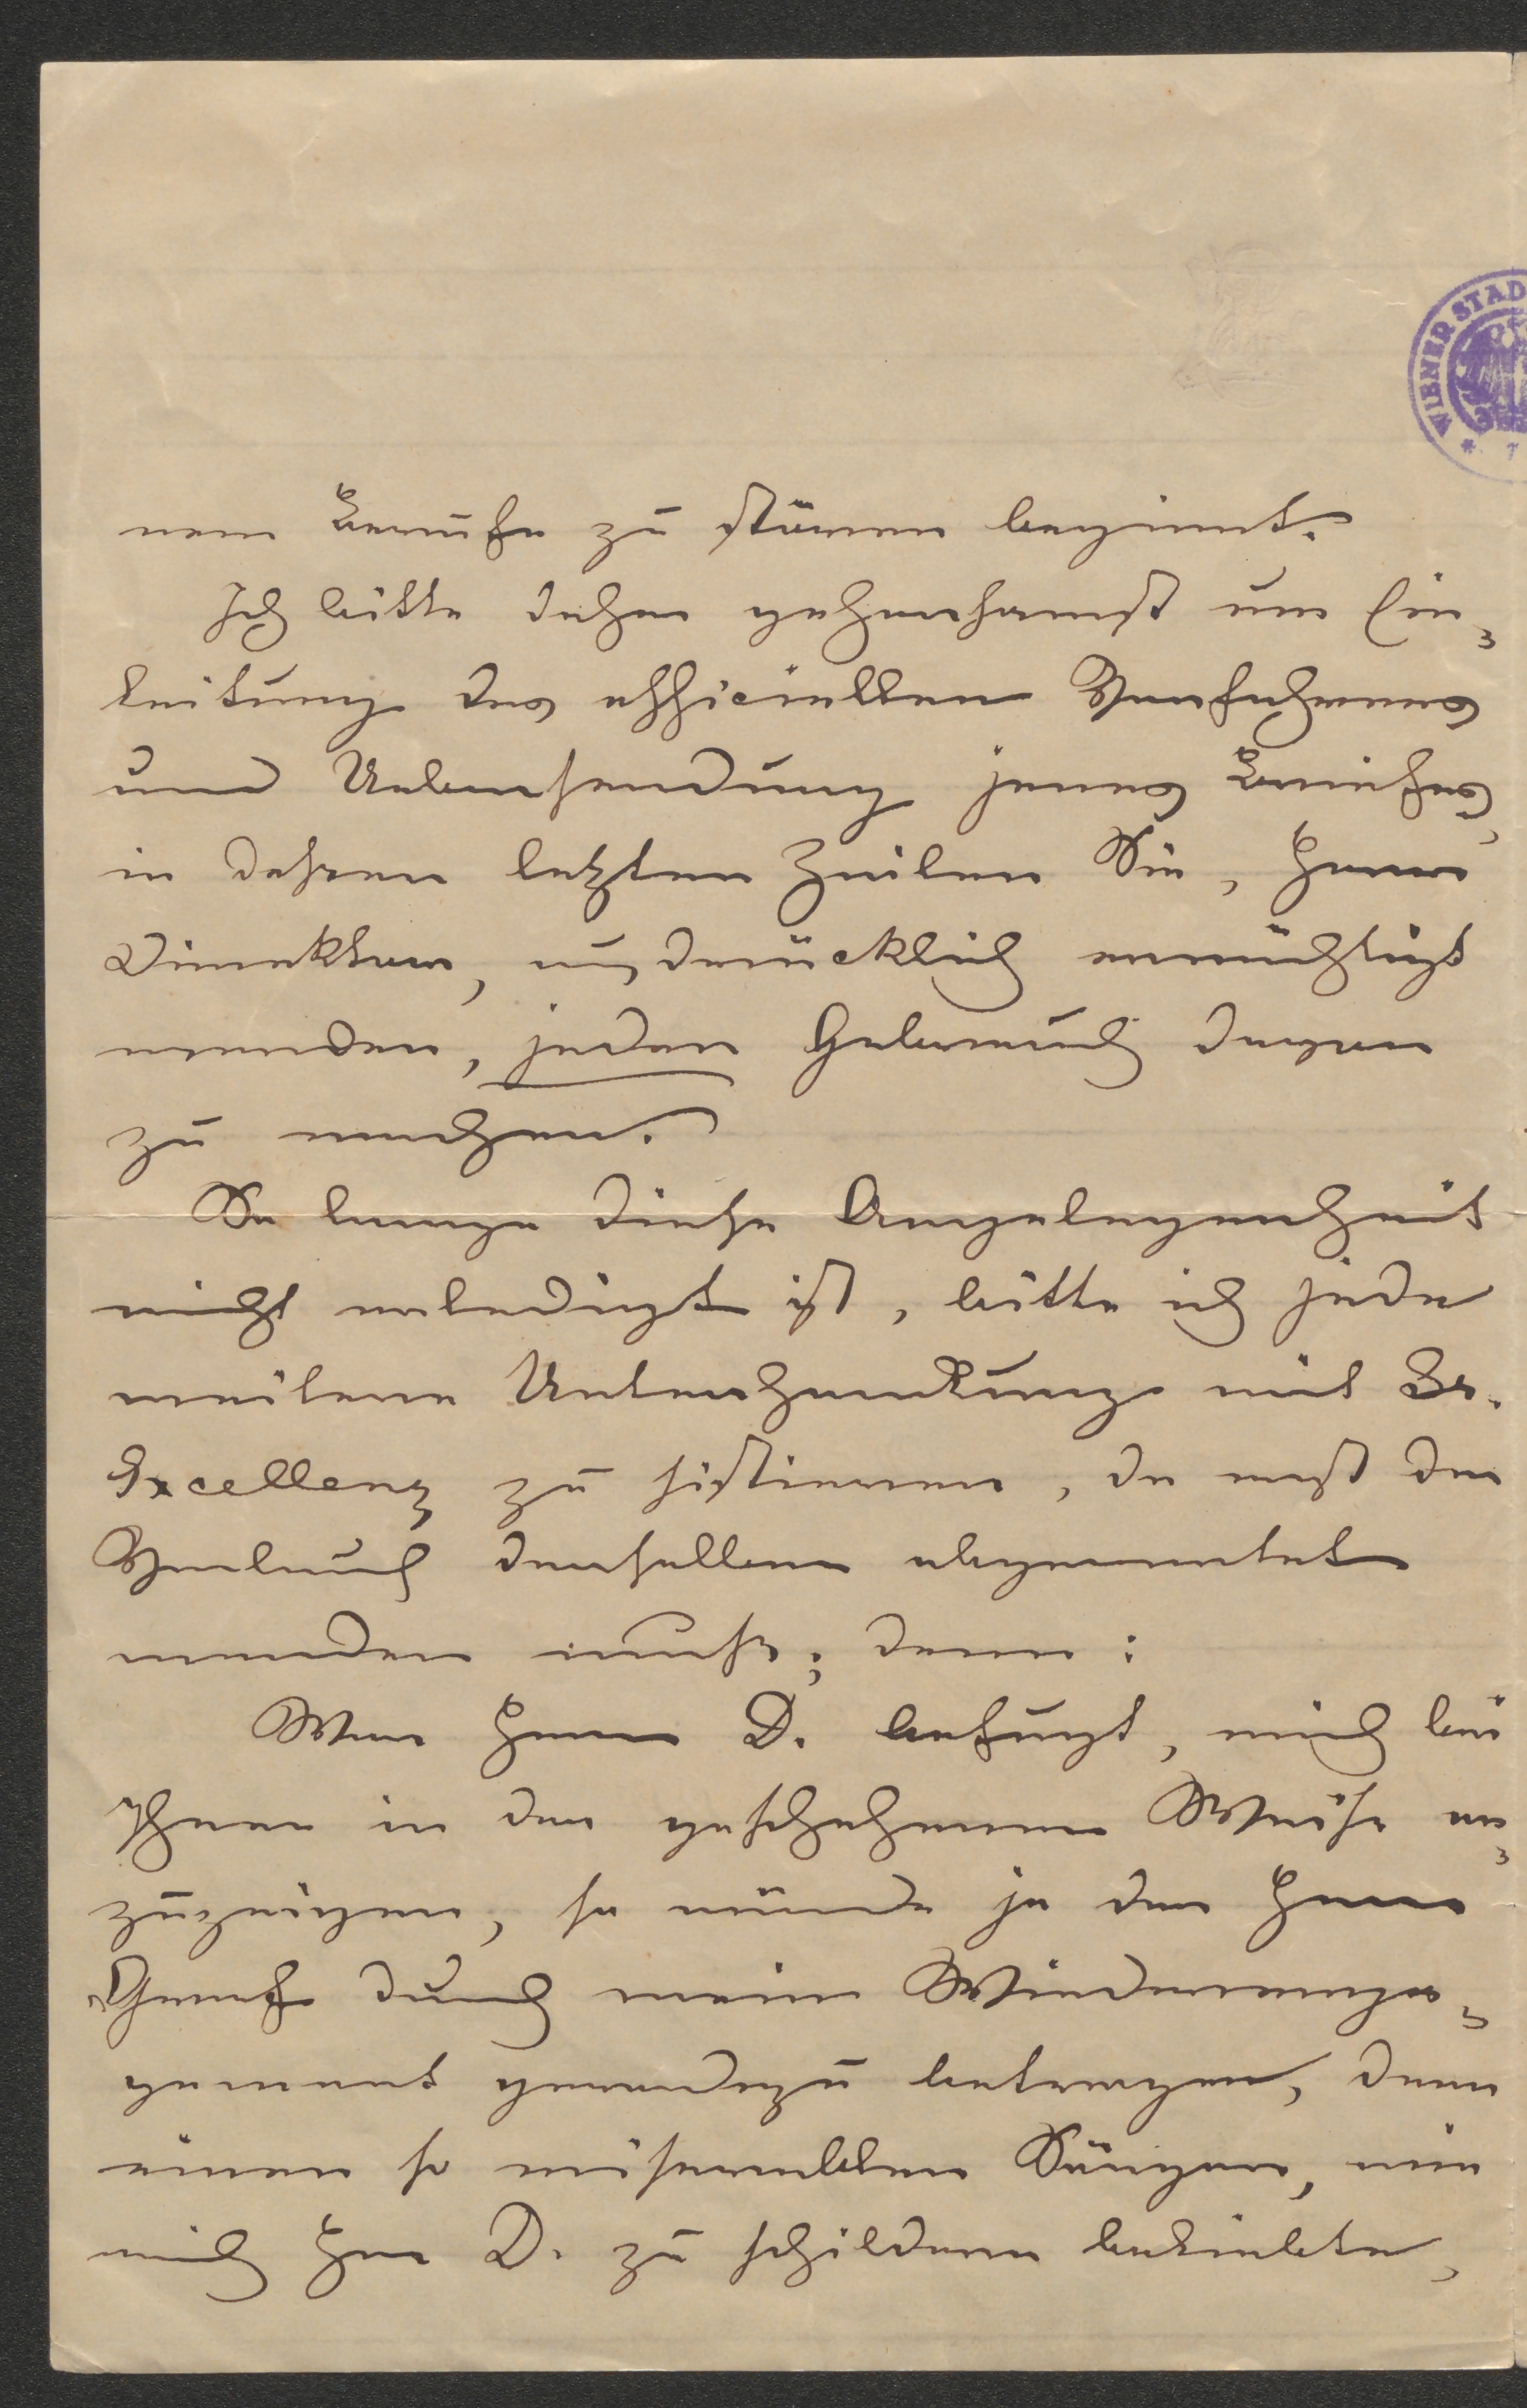 WIENER STAD
nem Berufe zu stören beginnt.
Ich bitte daher gehorsamst um Ein-
leitung des officiellen Verfahrens
und Uebersendung jenes Briefes,
in dessen letzten Zeilen Sie, Herr
Direktor, ausdrücklich ermächtigt
werden, jeden Gebrauch davon
zu machen.
So lange diese Angelegenheit
nicht erledigt ist, bitte ich jede
weitere Unterhandlung mit Sr.
Excellenz zu sistieren, da erst der
Verlauf derselben abgewartet
werden muß; denn:
War Herr D. befugt, mich bei
Ihnen in der geschehenen Weise an-
zuzeigen, so würde ja der Herr
Graf durch mein Wiederenga-
gement geradezu betrogen, denn
einen so miserablen Sänger, wie
mich Herr D. zu schildern beliebte,